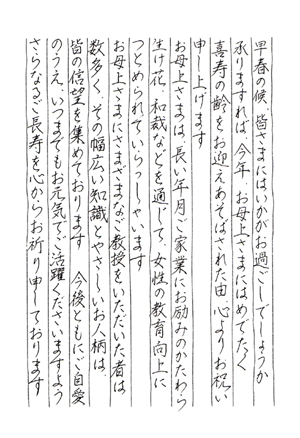 早春の候、皆さまにはいかがお過ごしでしょうか
承りますれば、今年、お母上さまにはめでたく
喜寿の齢をお迎えあそばされた由、心よりお祝い
申し上げます
お母上さまは、長い年月ご家業にお励みのかたわら
生け花、和裁などを通じて、女性の教育向上に
つとめられていらっしゃいます
お母上さまにさまざまなご教授をいただいた者は
数多く、その幅広い知識とやさしいお人柄は、
皆の信望を集めております　今後ともにご自愛
のうえ、いつまでもお元気でご活躍くださいますよう
さらなるご長寿を心からお祈り申しております